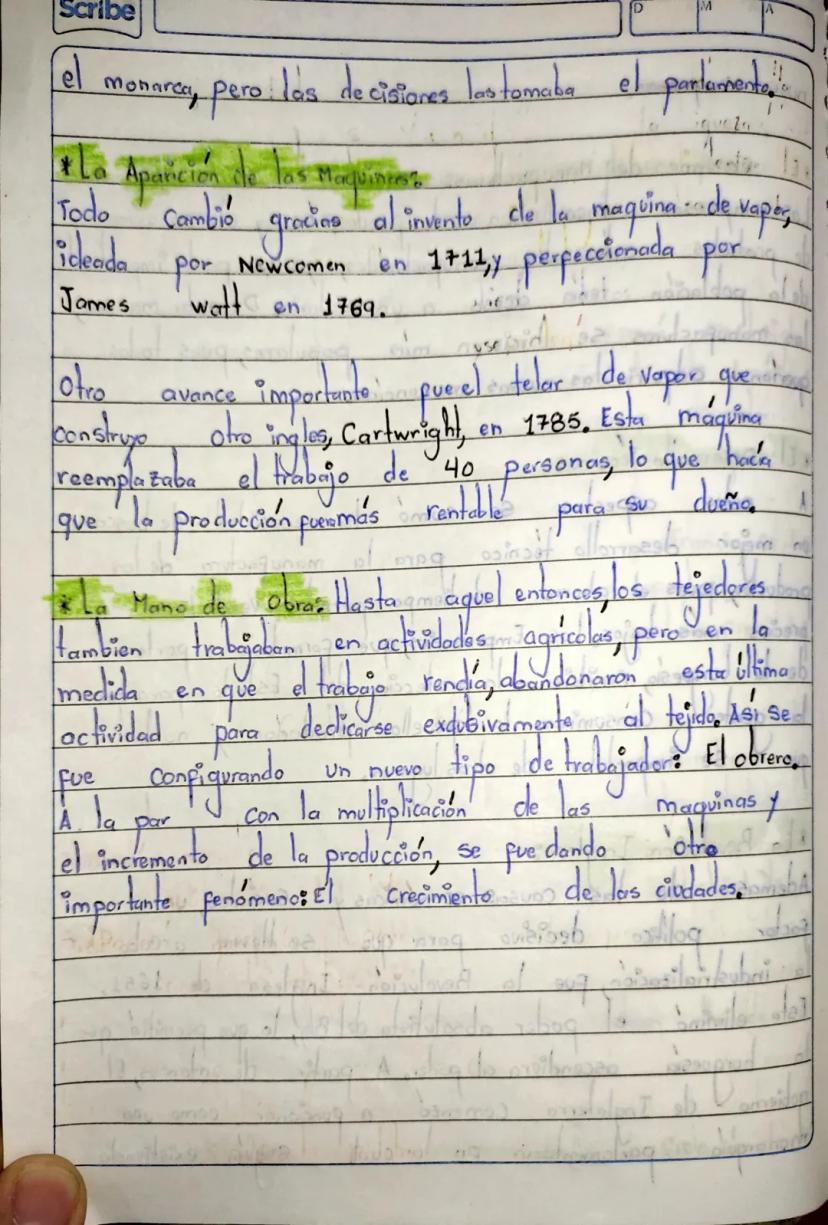 Scribe
D M A
el monarca, pero las decisiones las tomaba el parlamento.
*La Aparición de las Maquinas:
Todo cambió gracias al invento de la maquina de vapor,
ideada por Newcomen en 1711, y perfeccionada por
James watt en 1769.
Otro avance importante fue el telar de vapor que
construyo otro ingles, Cartwright, en 1785. Esta máquina
reemplazaba el trabajo de 40 personas, lo que hacía
que la producción fuera más rentable para su dueño.
*La Mano de Obra: Hasta aquel entonces, los tejedores
tambien trabajaban en actividades agrícolas, pero en la
medida en que el trabajo rendía, abandonaron esta última
actividad para dedicarse exclusivamente al tejido. Así se
fue configurando un nuevo tipo de trabajador: El obrero.
A la par con la multiplicación de las maquinas y
el incremento de la producción, se fue dando otro
importante fenómeno: El Crecimiento de las ciudades.